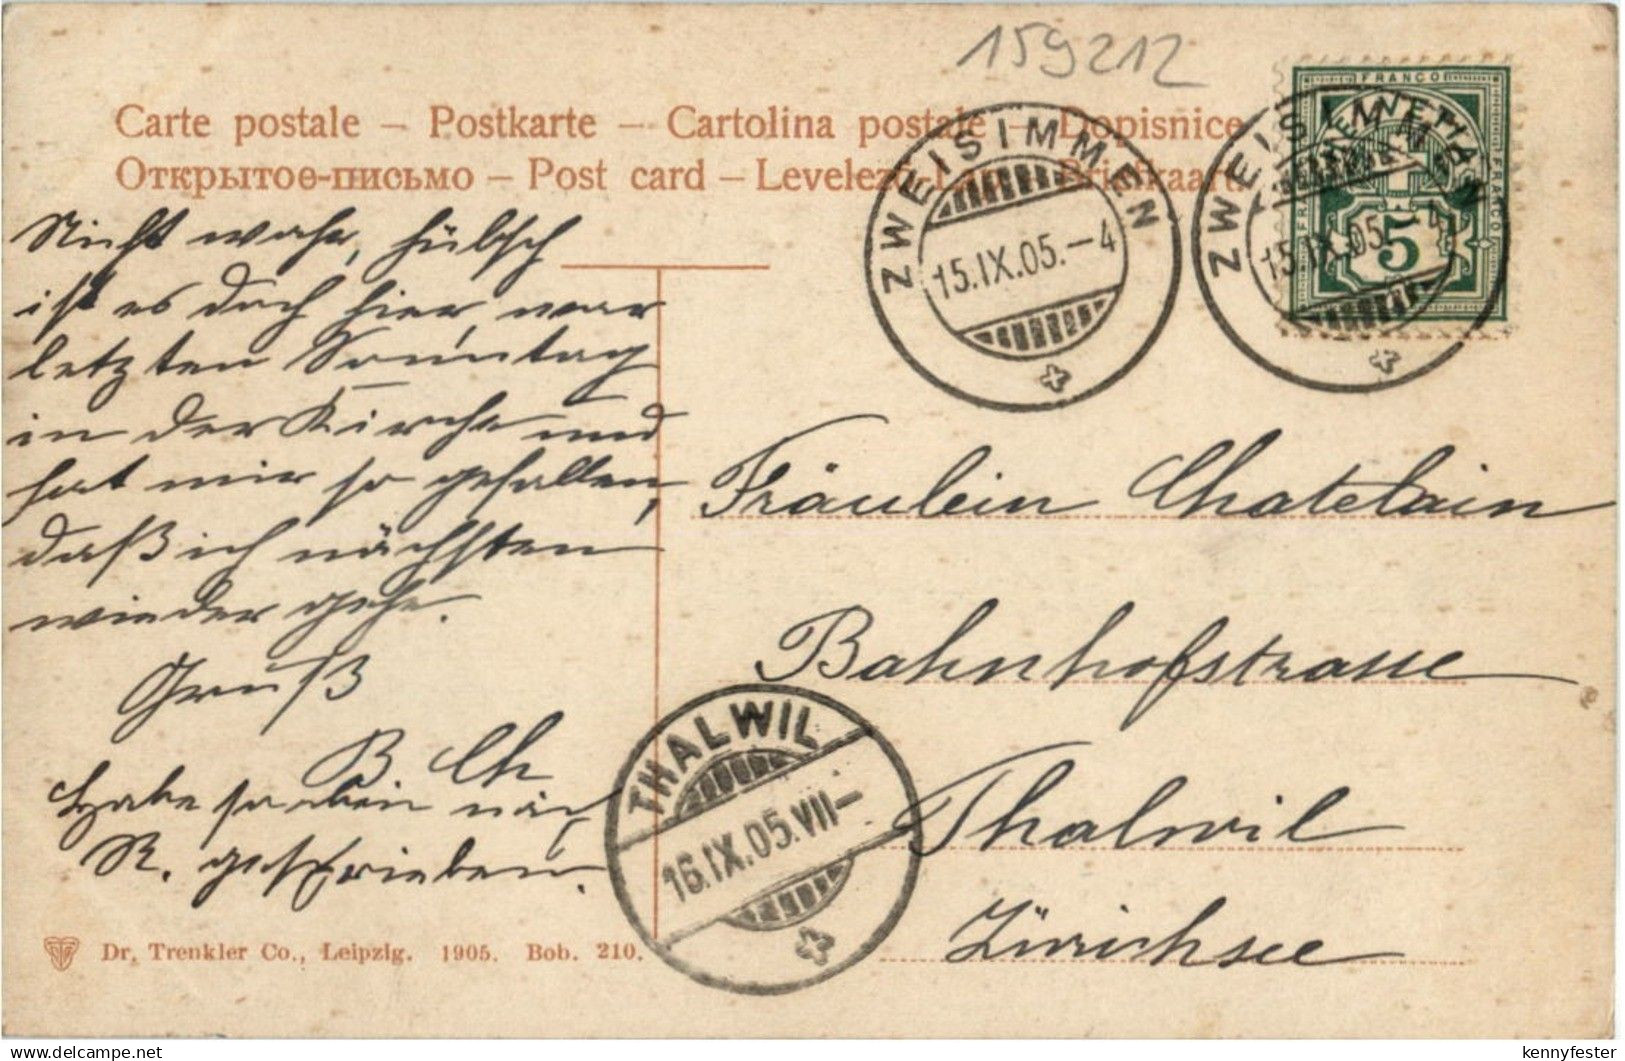 159212
Carte postale – Postkarte – Cartolina postale – Dopisnice
Открытое-письмо – Post card – Levelező-Lap – Briefkaart
ZWEISIMMEN
15.IX.05.–4
ZWEISIMMEN
15.IX.05.–4
FRANCO
FRANCO
FRANCO
5
Nicht wahr, hübsch
ist es doch hier, war
letzten Sonntag
in der Kirche und
hat mir so gefallen,
daß ich nächsten
wieder gehe.
Gruß
B. Ch
Habe soeben nach
R. geschrieben.
Fräulein Chatelain
Bahnhofstrasse
Thalwil
Zürichsee
THALWIL
16.IX.05.VII–
Dr. Trenkler Co., Leipzig. 1905. Bob. 210.
https://www.delcampe.net
kennyfester